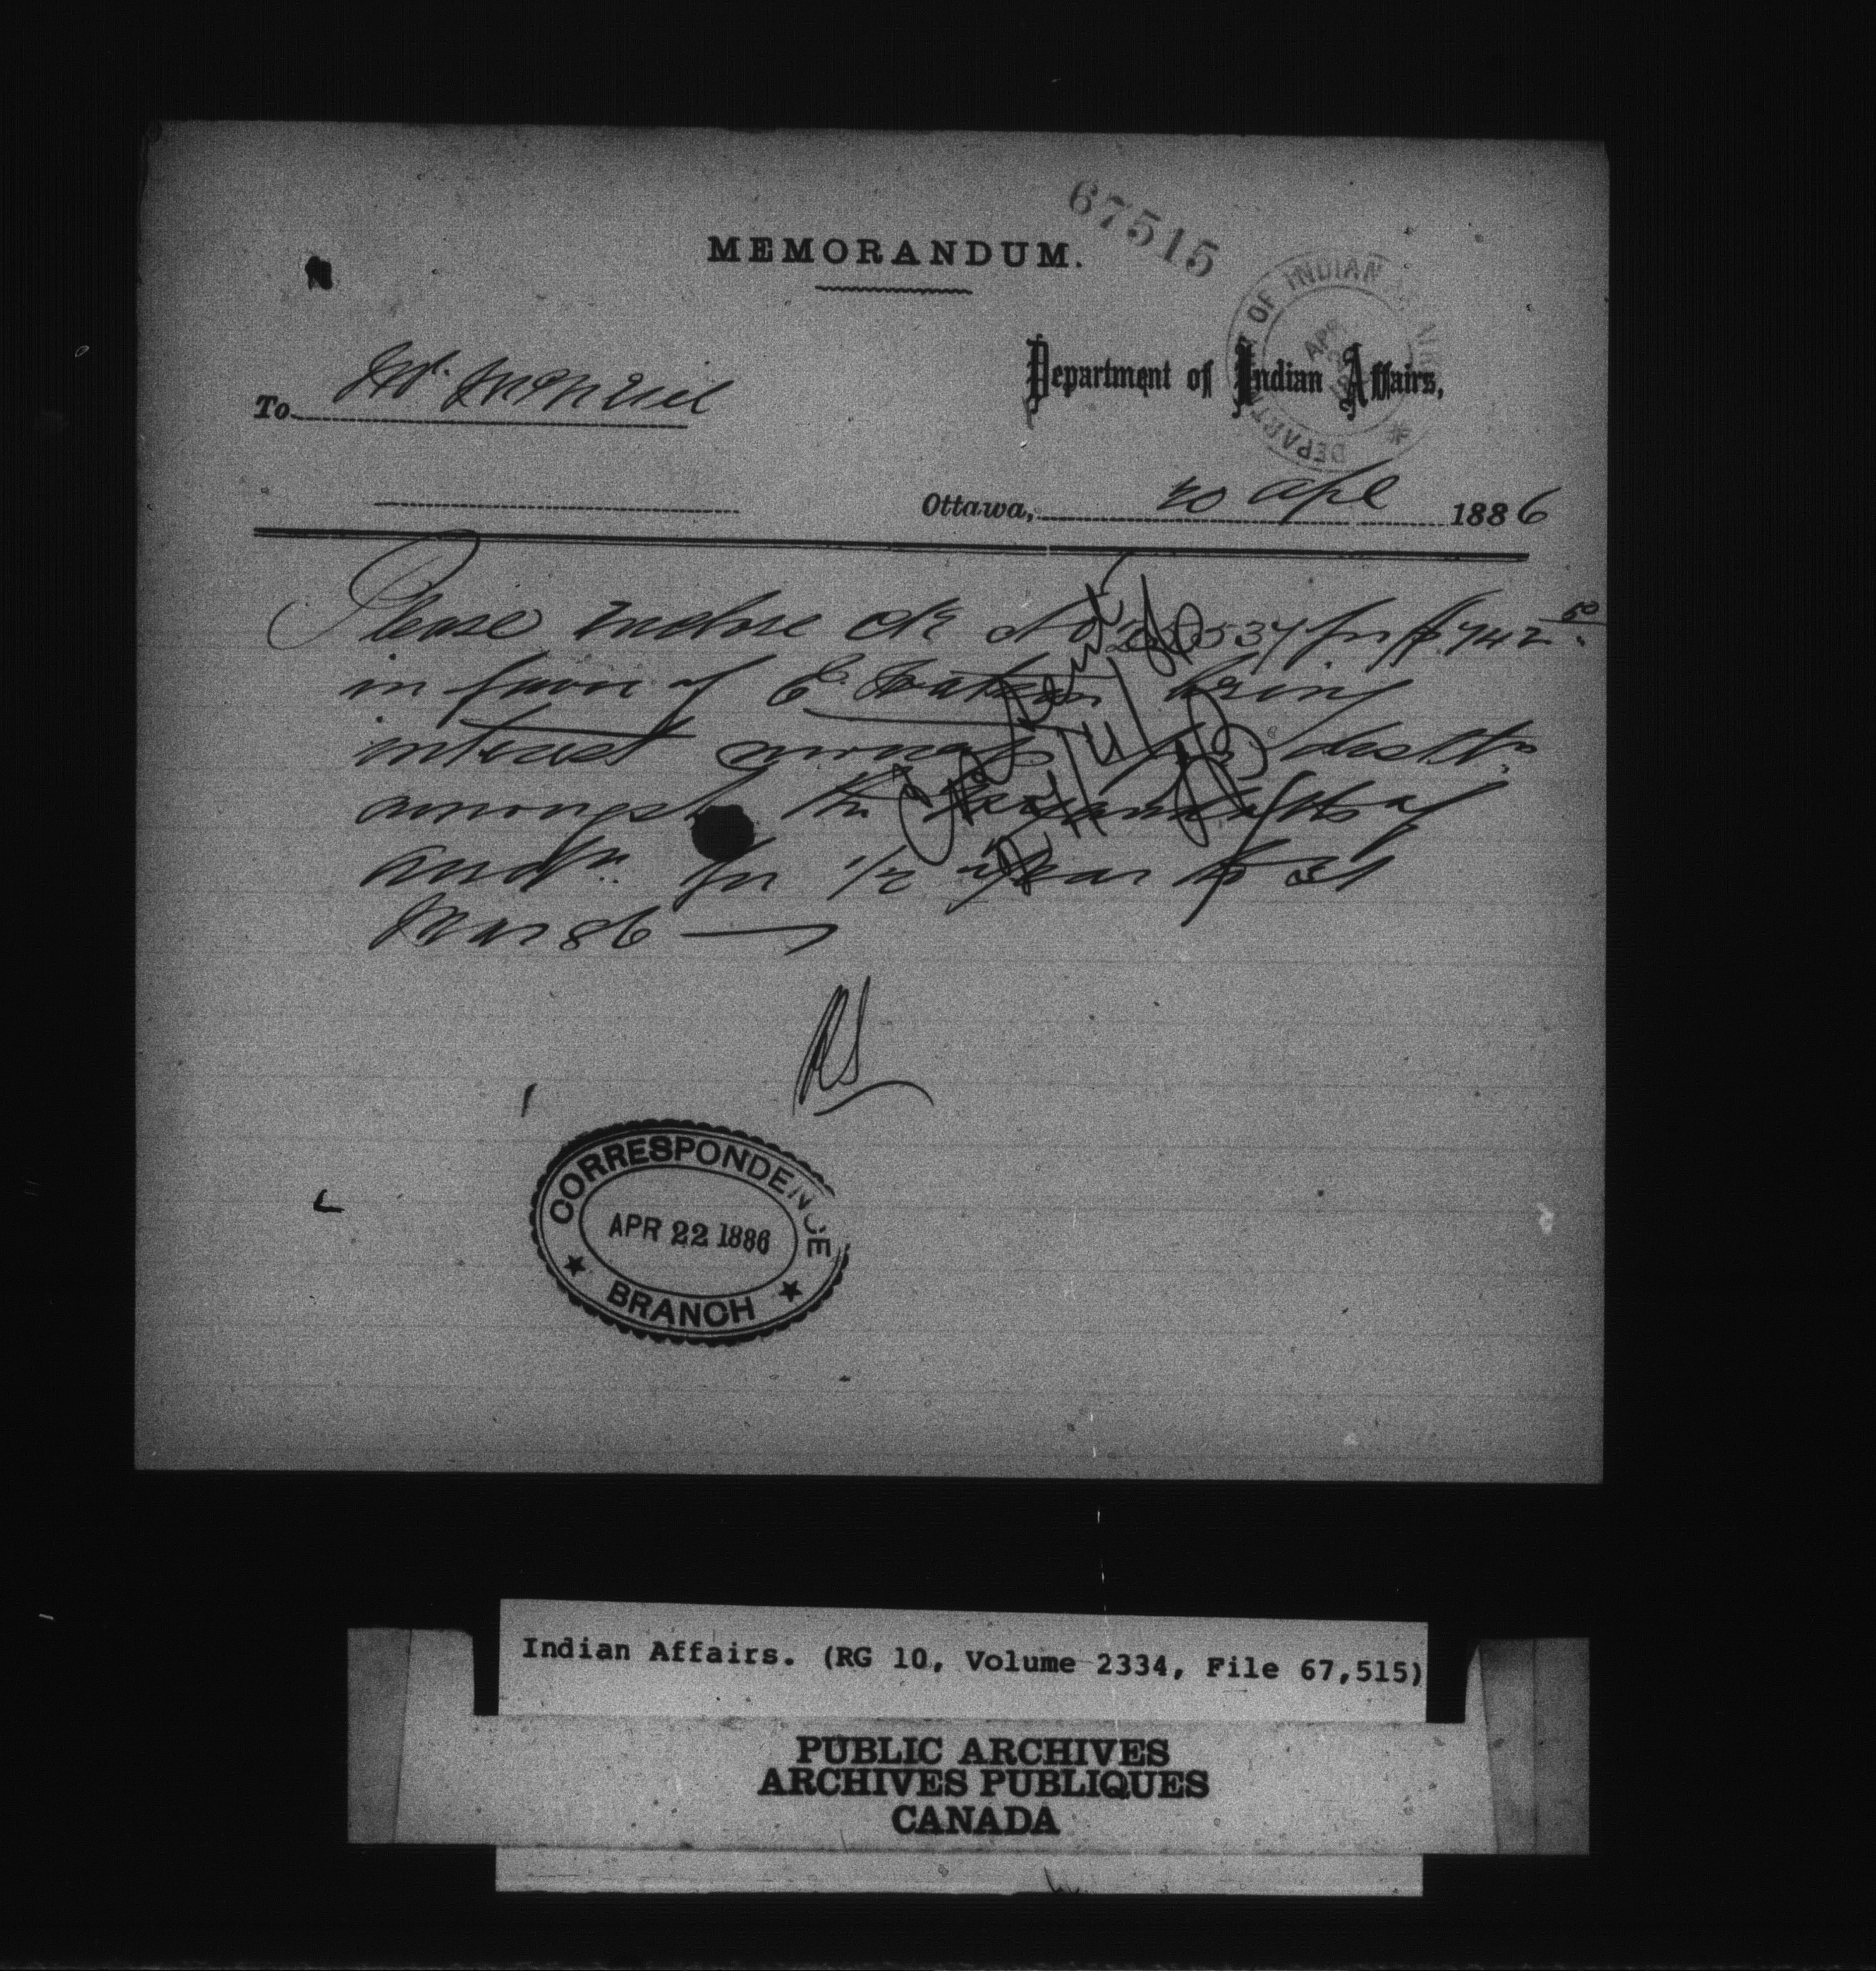 67515
MEMORANDUM.
DEPARTMENT OF INDIAN AFFAIRS
APR
To Mr. McNeil
Department of Indian Affairs,
Ottawa, 20 Apl 1886
Please enclose ck No 537 for $742 50
in favor of E. Watson being
interest moneys for distn
amongst the of
for 1/2 year to 31
Mar 86
CORRESPONDENCE
APR 22 1886
BRANCH
Indian Affairs. (RG 10, Volume 2334, File 67,515)
PUBLIC ARCHIVES
ARCHIVES PUBLIQUES
CANADA